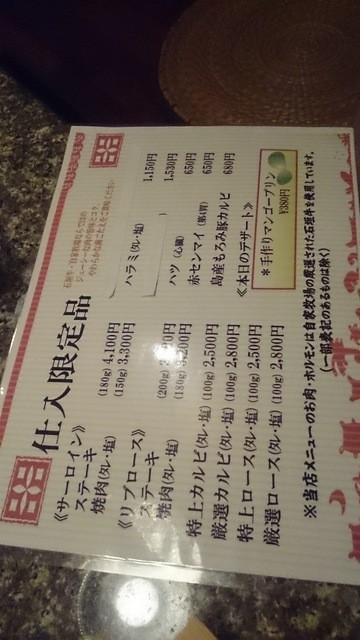 仕入限定品
《サーロイン》
ステーキ (180g) 4,100円
焼肉(タレ・塩) (150g) 3,300円
《リブロース》
ステーキ (200g)
焼肉(タレ・塩) (180g)
特上カルビ(タレ・塩) (100g) 2,500円
厳選カルビ(タレ・塩) (100g) 2,800円
特上ロース(タレ・塩) (100g) 2,500円
厳選ロース(タレ・塩) (100g) 2,800円
ハラミ(タレ・塩) 1,150円
) 1,530円
ハツ(心臓) 650円
赤センマイ(第4胃) 650円
島産もろみ豚カルビ 680円
《本日のデザート》
*手作りマンゴープリン
¥380円
※当店メニューのお肉・ホルモンは自家牧場の厳選された石垣牛を使用しています。
(一部表記のあるものは除く)